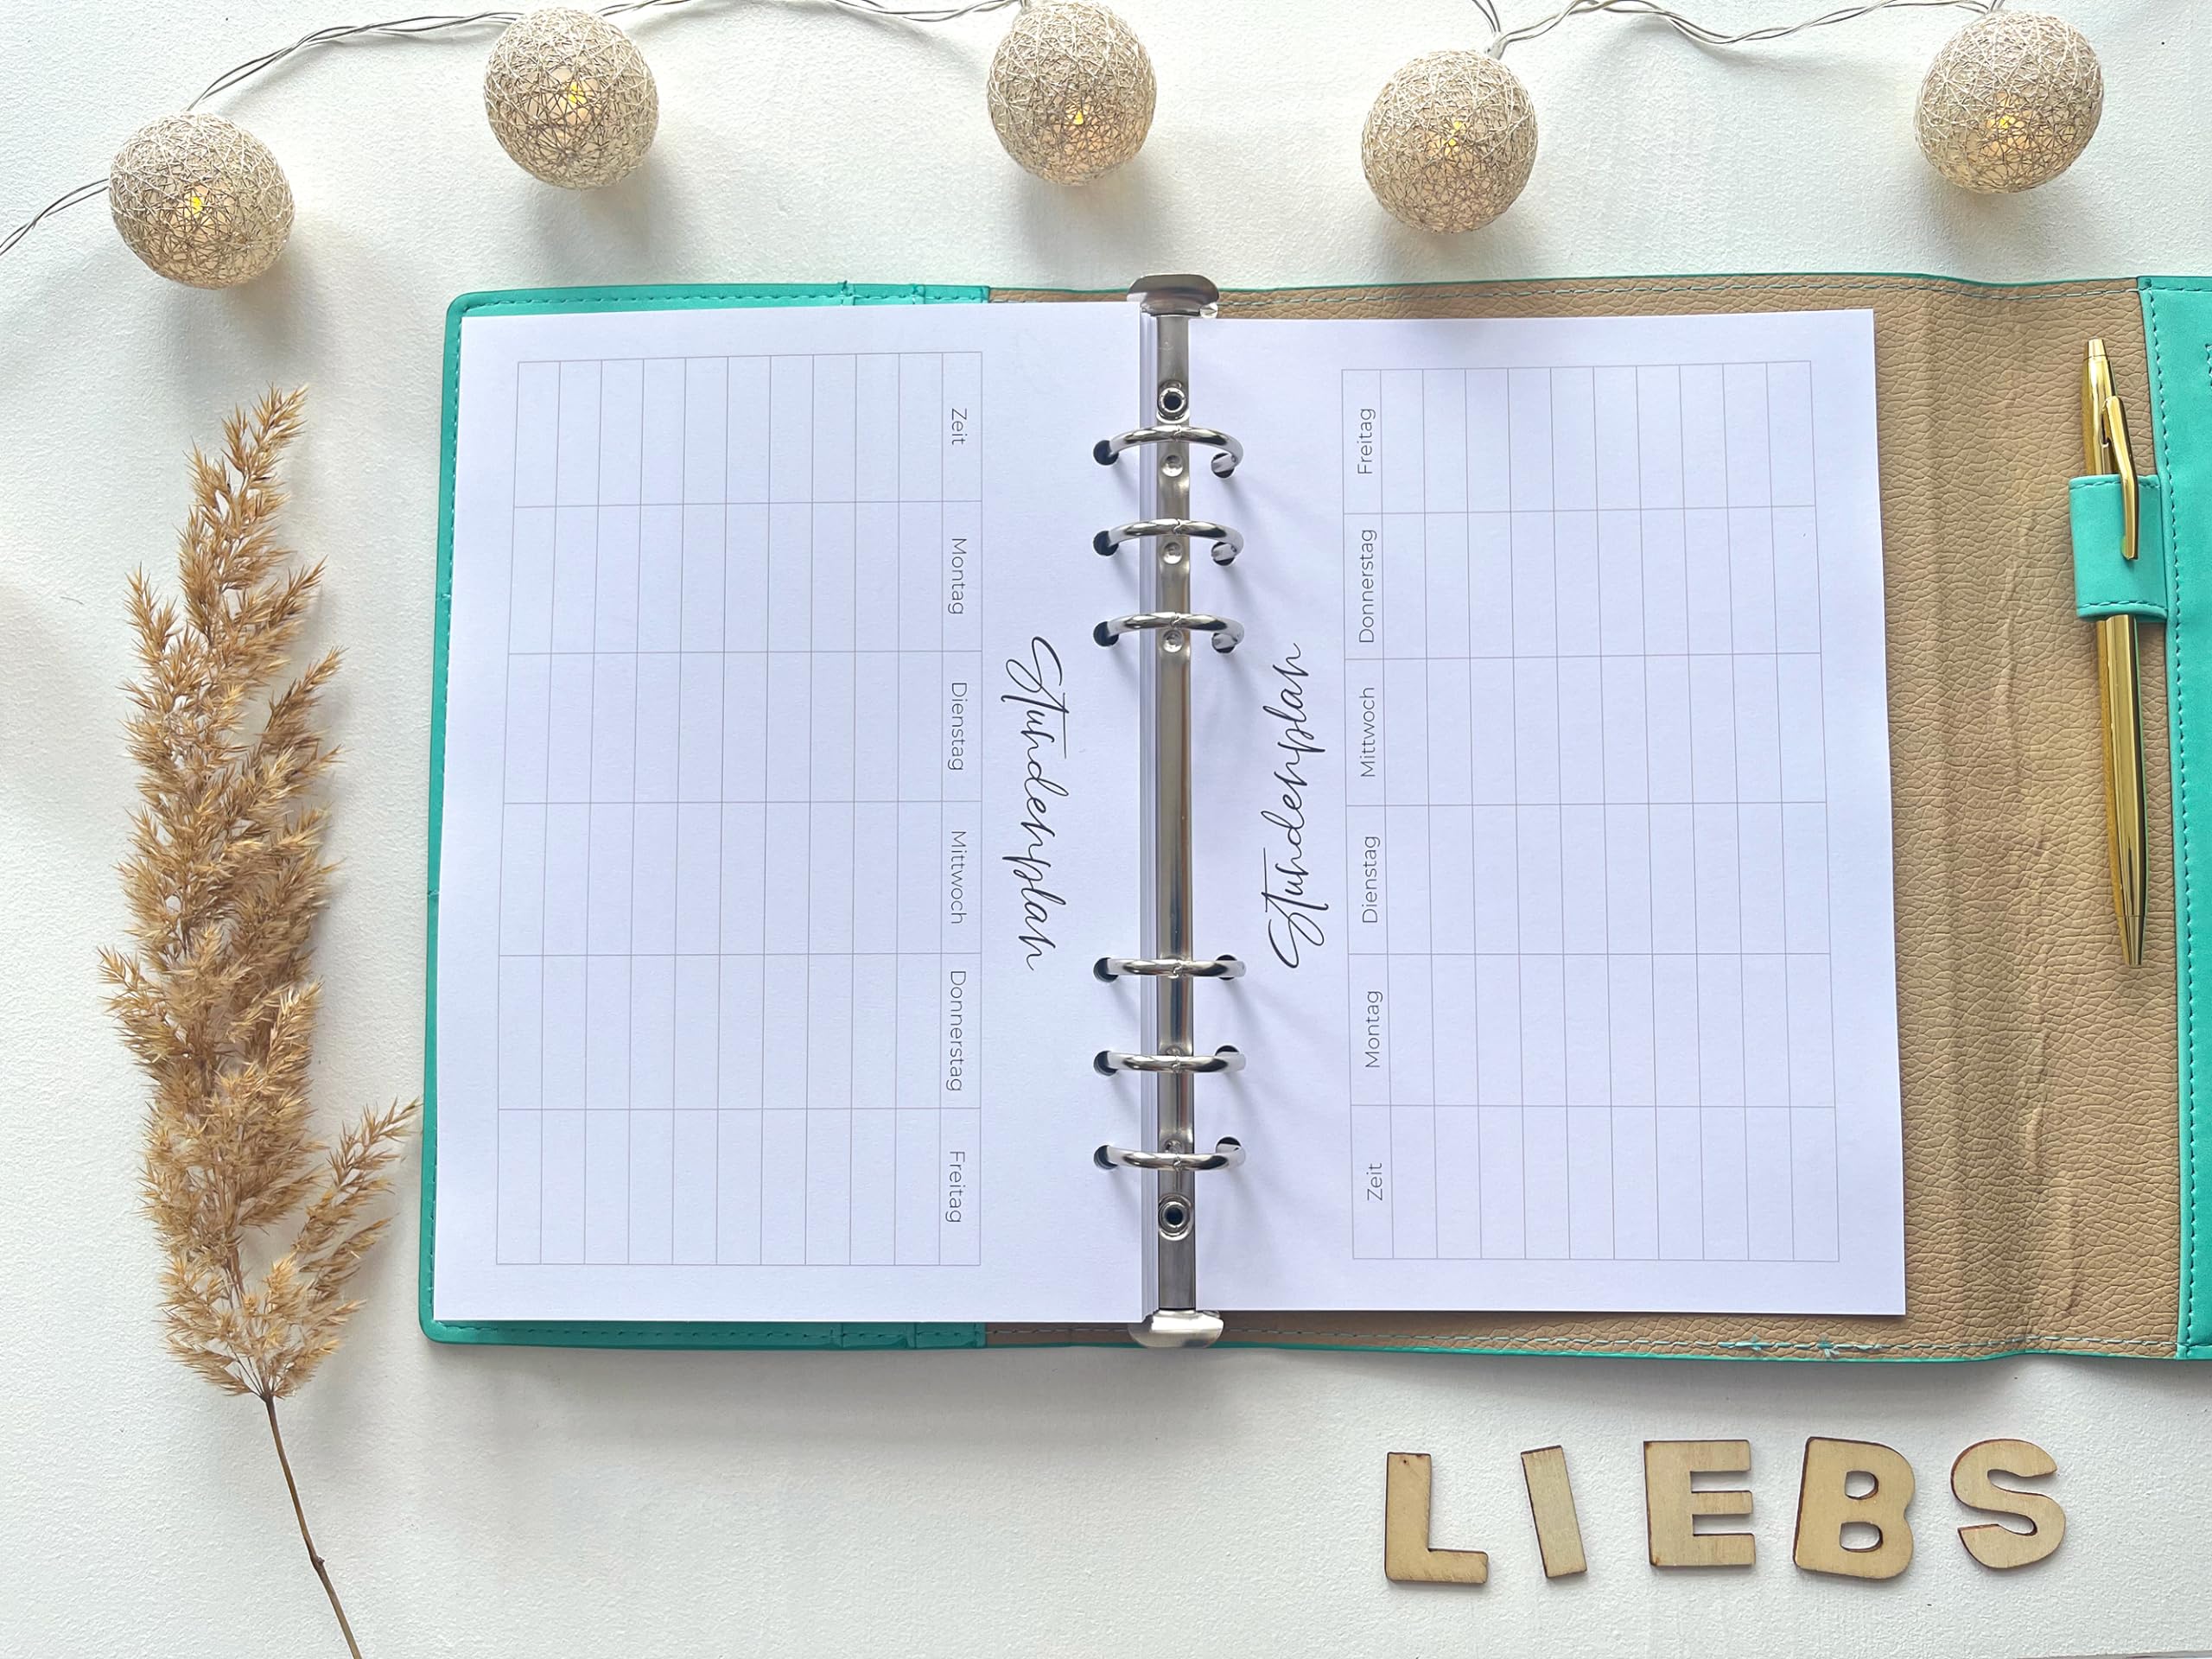 Stundenplan
Zeit Montag Dienstag Mittwoch Donnerstag Freitag
Stundenplan
Zeit Montag Dienstag Mittwoch Donnerstag Freitag
LIEBS